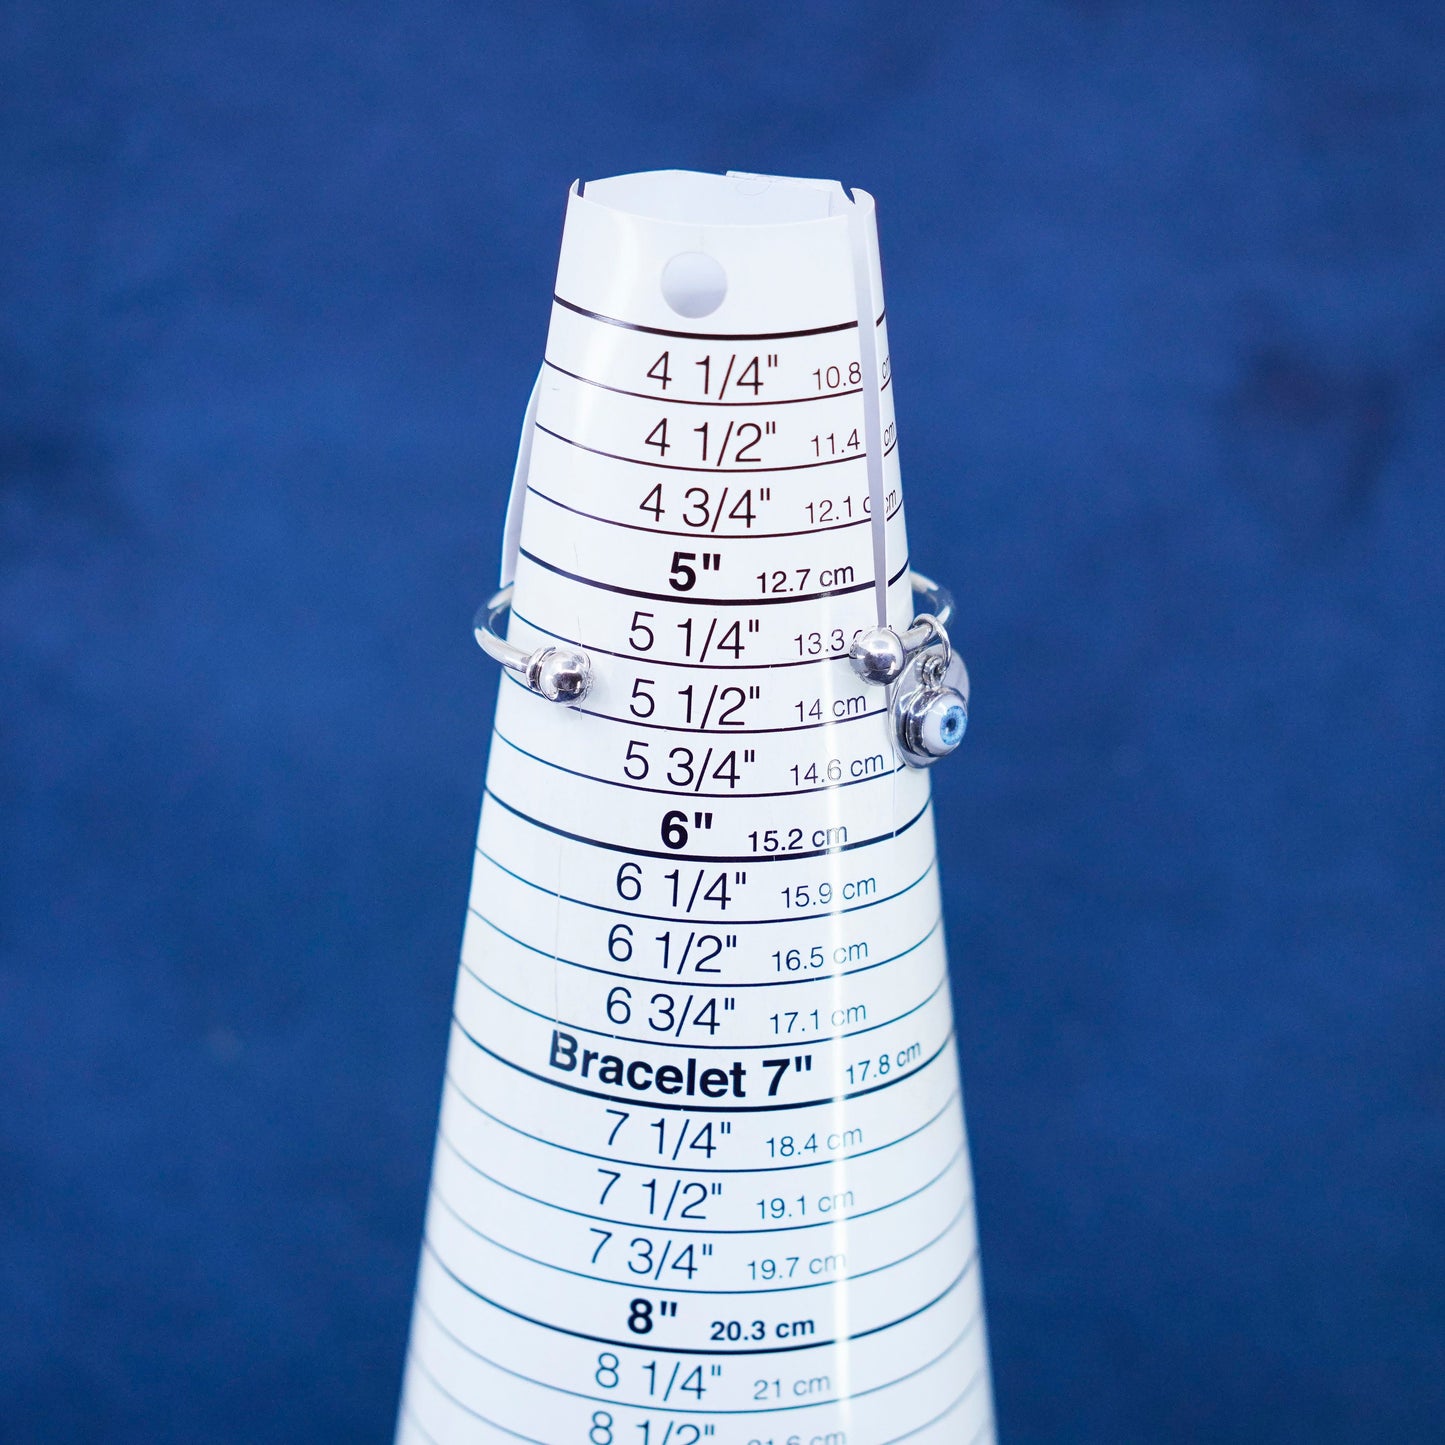 4 1/4" 10.8 cm
4 1/2" 11.4 cm
4 3/4" 12.1 cm
5" 12.7 cm
5 1/4" 13.3
5 1/2" 14 cm
5 3/4" 14.6 cm
6" 15.2 cm
6 1/4" 15.9 cm
6 1/2" 16.5 cm
6 3/4" 17.1 cm
Bracelet 7" 17.8 cm
7 1/4" 18.4 cm
7 1/2" 19.1 cm
7 3/4" 19.7 cm
8" 20.3 cm
8 1/4" 21 cm
8 1/2" 21.6 cm